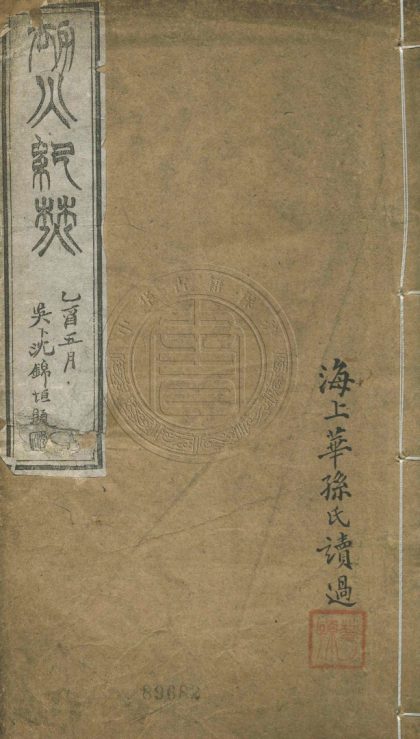 劫火紀焚
乙酉五月
吳下沈錦垣題
海上華孫氏讀過
89682